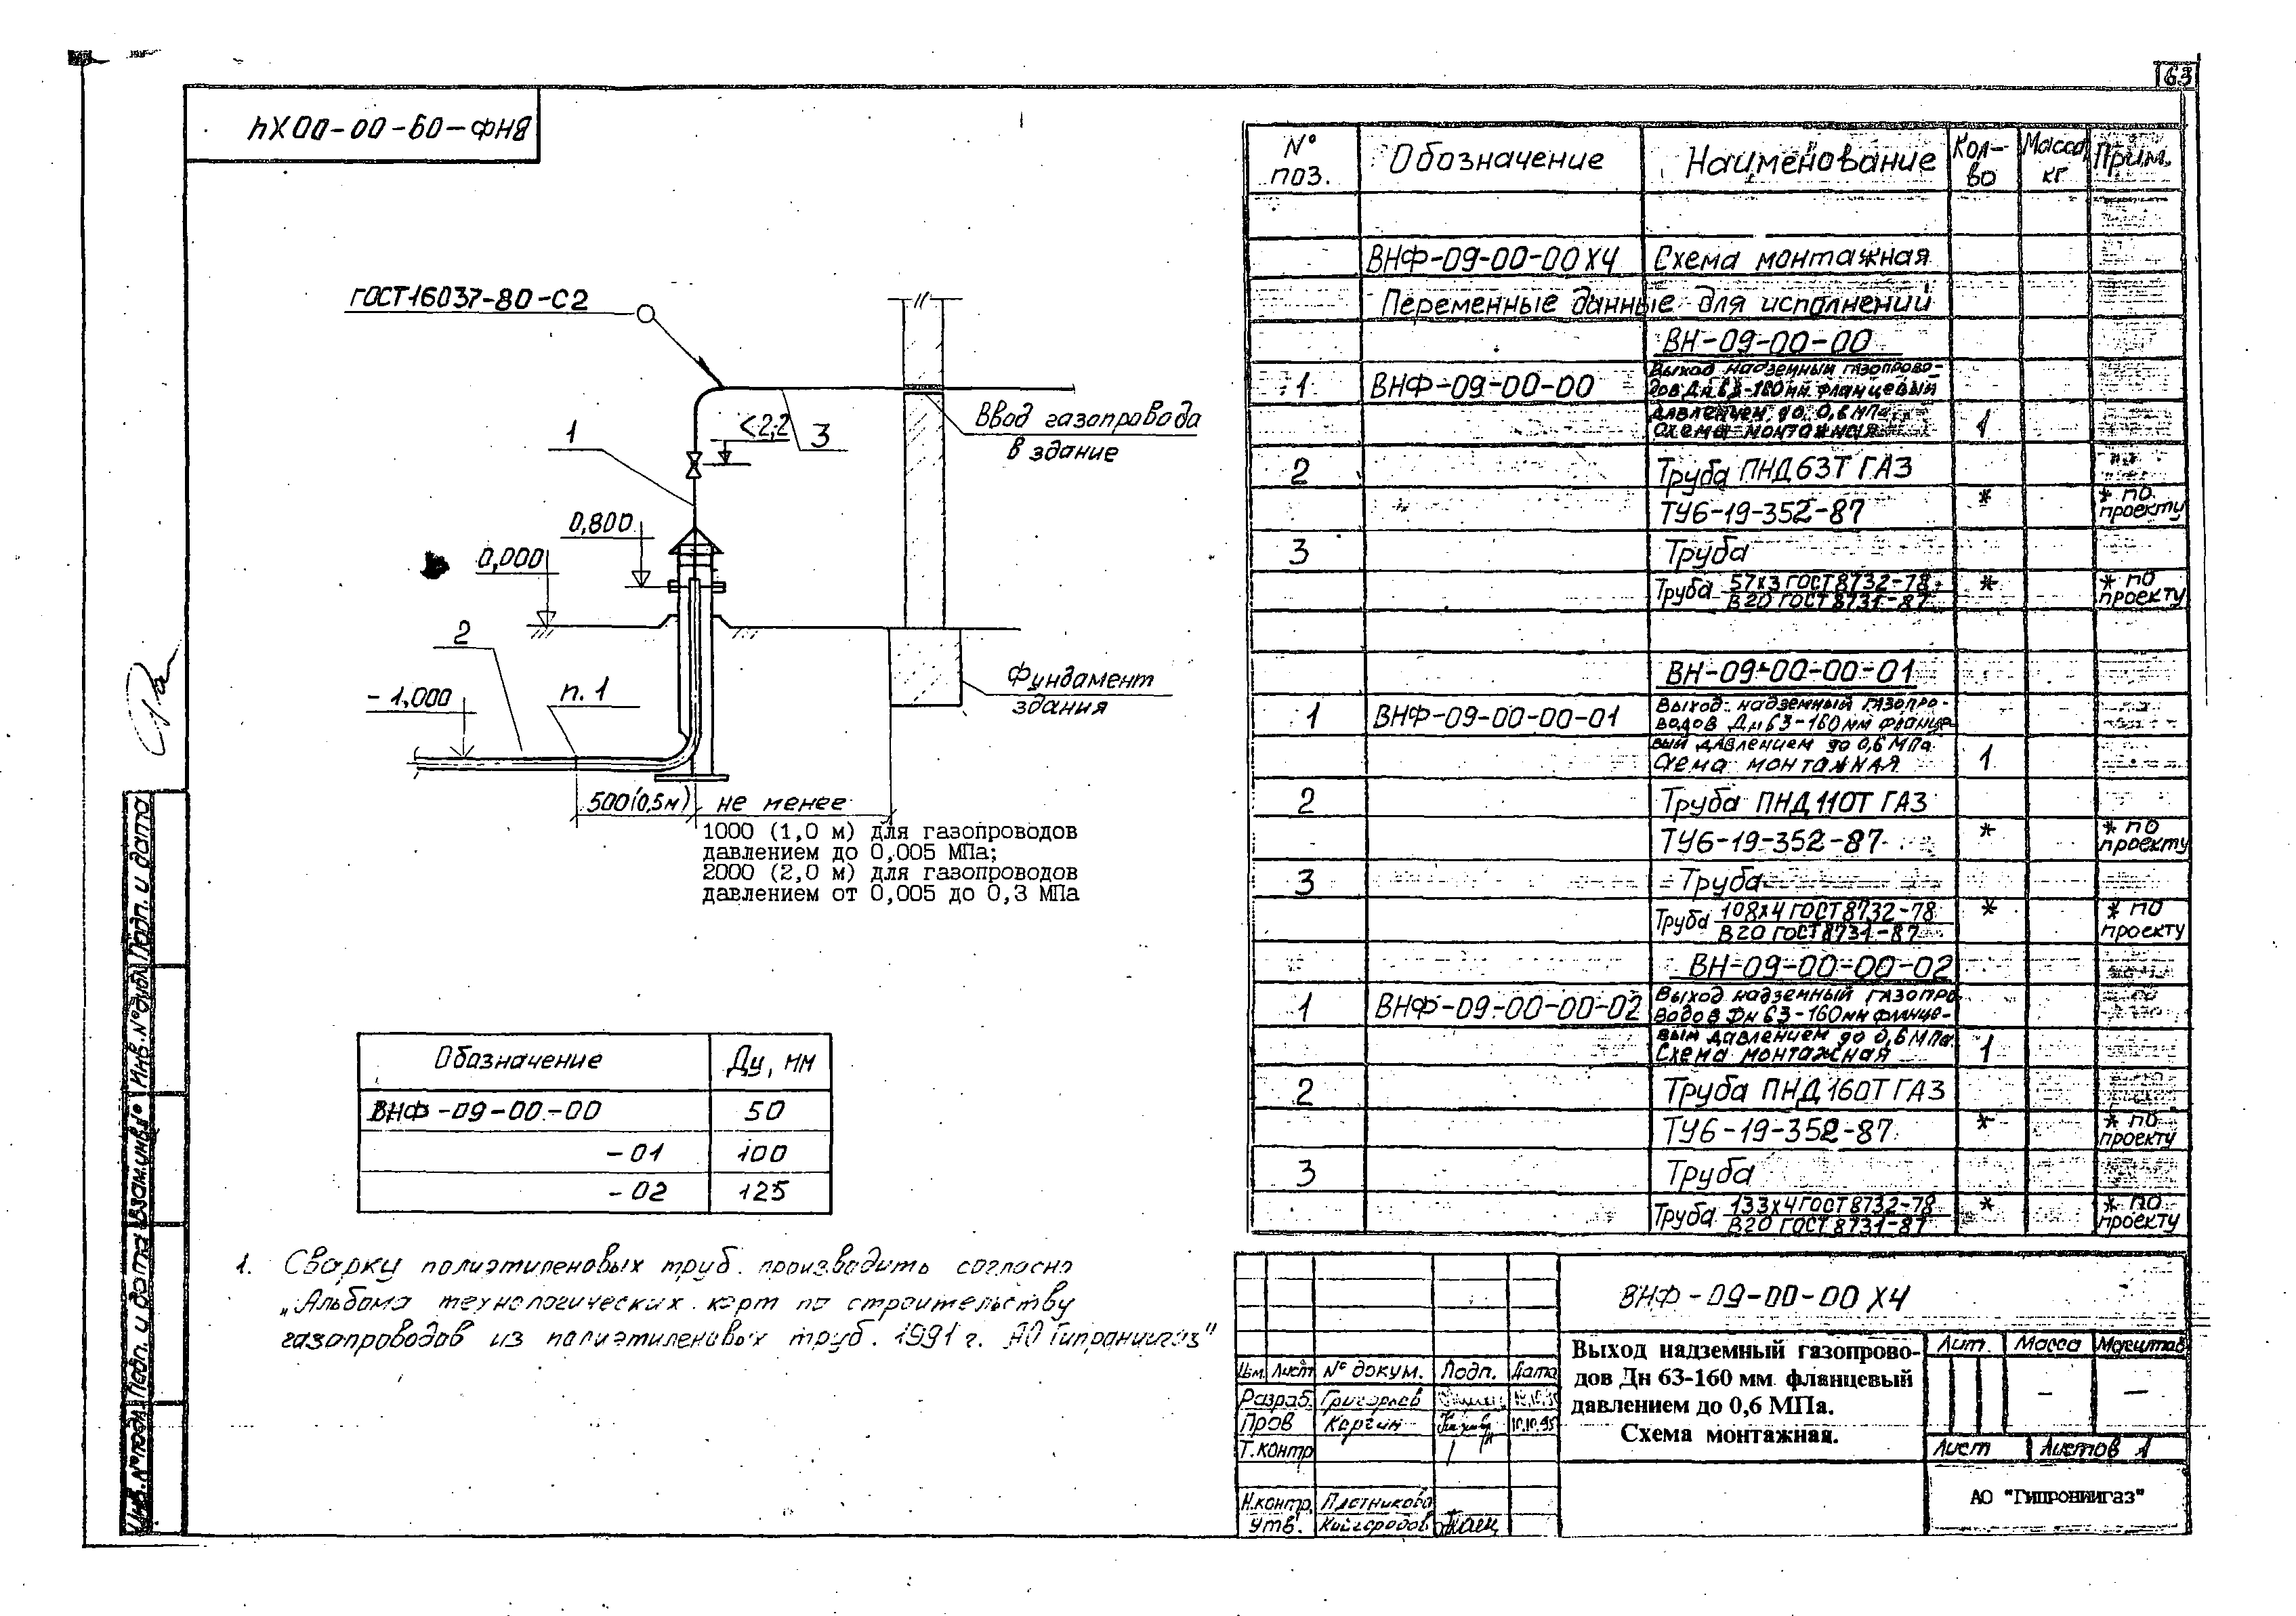 63
ВНФ-09-00-00Х4
ГОСТ16037-80-С2
1
<2,2
3
Ввод газопровода
в здание
0,800
0,000
2
-1,000
п.1
Фундамент
здания
500(0,5м)
не менее
1000 (1,0 м) для газопроводов
давлением до 0,005 МПа;
2000 (2,0 м) для газопроводов
давлением от 0,005 до 0,3 МПа
Обозначение Ду, мм
ВНФ-09-00-00 50
-01 100
-02 125
1. Сварку полиэтиленовых труб производить согласно
„Альбома технологических карт по строительству
газопроводов из полиэтиленовых труб. 1991 г. АО Гипрониигаз"
№ поз. Обозначение Наименование Кол-во Масса кг Прим.
ВНФ-09-00-00Х4 Схема монтажная
Переменные данные для исполнений
ВН-09-00-00
1 ВНФ-09-00-00 Выход надземный газопрово-
дов Дн 63-160мм фланцевый
давлением до 0,6 МПа.
Схема монтажная 1
2 Труба ПНД63Т ГАЗ
ТУ6-19-352-87 * * по проекту
3 Труба
Труба 57х3 ГОСТ8732-78 * * по проекту
В20 ГОСТ8731-87
ВН-09-00-00-01
1 ВНФ-09-00-00-01 Выход надземный газопро-
водов Дн63-160мм фланце
вый давлением до 0,6 МПа
Схема монтажная 1
2 Труба ПНД110Т ГАЗ
ТУ6-19-352-87 * * по проекту
3 Труба
Труба 108х4 ГОСТ8732-78 * * по проекту
В20 ГОСТ8731-87
ВН-09-00-00-02
1 ВНФ-09-00-00-02 Выход надземный газопро
водов Дн 63-160мм фланце-
вым давлением до 0,6 МПа
Схема монтажная 1
2 Труба ПНД160Т ГАЗ
ТУ6-19-352-87 * * по проекту
3 Труба
Труба 133х4 ГОСТ8732-78 * * по проекту
В20 ГОСТ8731-87
ВНФ-09-00-00 Х4
Выход надземный газопрово-
дов Дн 63-160 мм фланцевый
давлением до 0,6 МПа.
Схема монтажная.
Лит. Масса Масштаб
- -
Лист Листов 1
АО "Гипрониигаз"
Изм. Лист № докум. Подп. Дата
Разраб. Григорьев
Пров Кергин 10.10.95
Т.контр
Н.контр. Плетникова
Утв. Кайгородов
Инв.№подл. Подп. и дата Взам.инв.№ Инв.№дубл. Подп. и дата